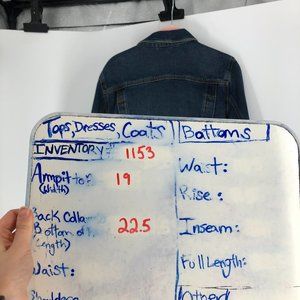 Tops, Dresses, Coats
INVENTORY# 1153
Armpit to: 19
(width)
Back Colla
Bottom of
(Length) 22.5
Waist:
Shoulders
Bottoms
Waist:
Rise:
Inseam:
Full Length:
Other